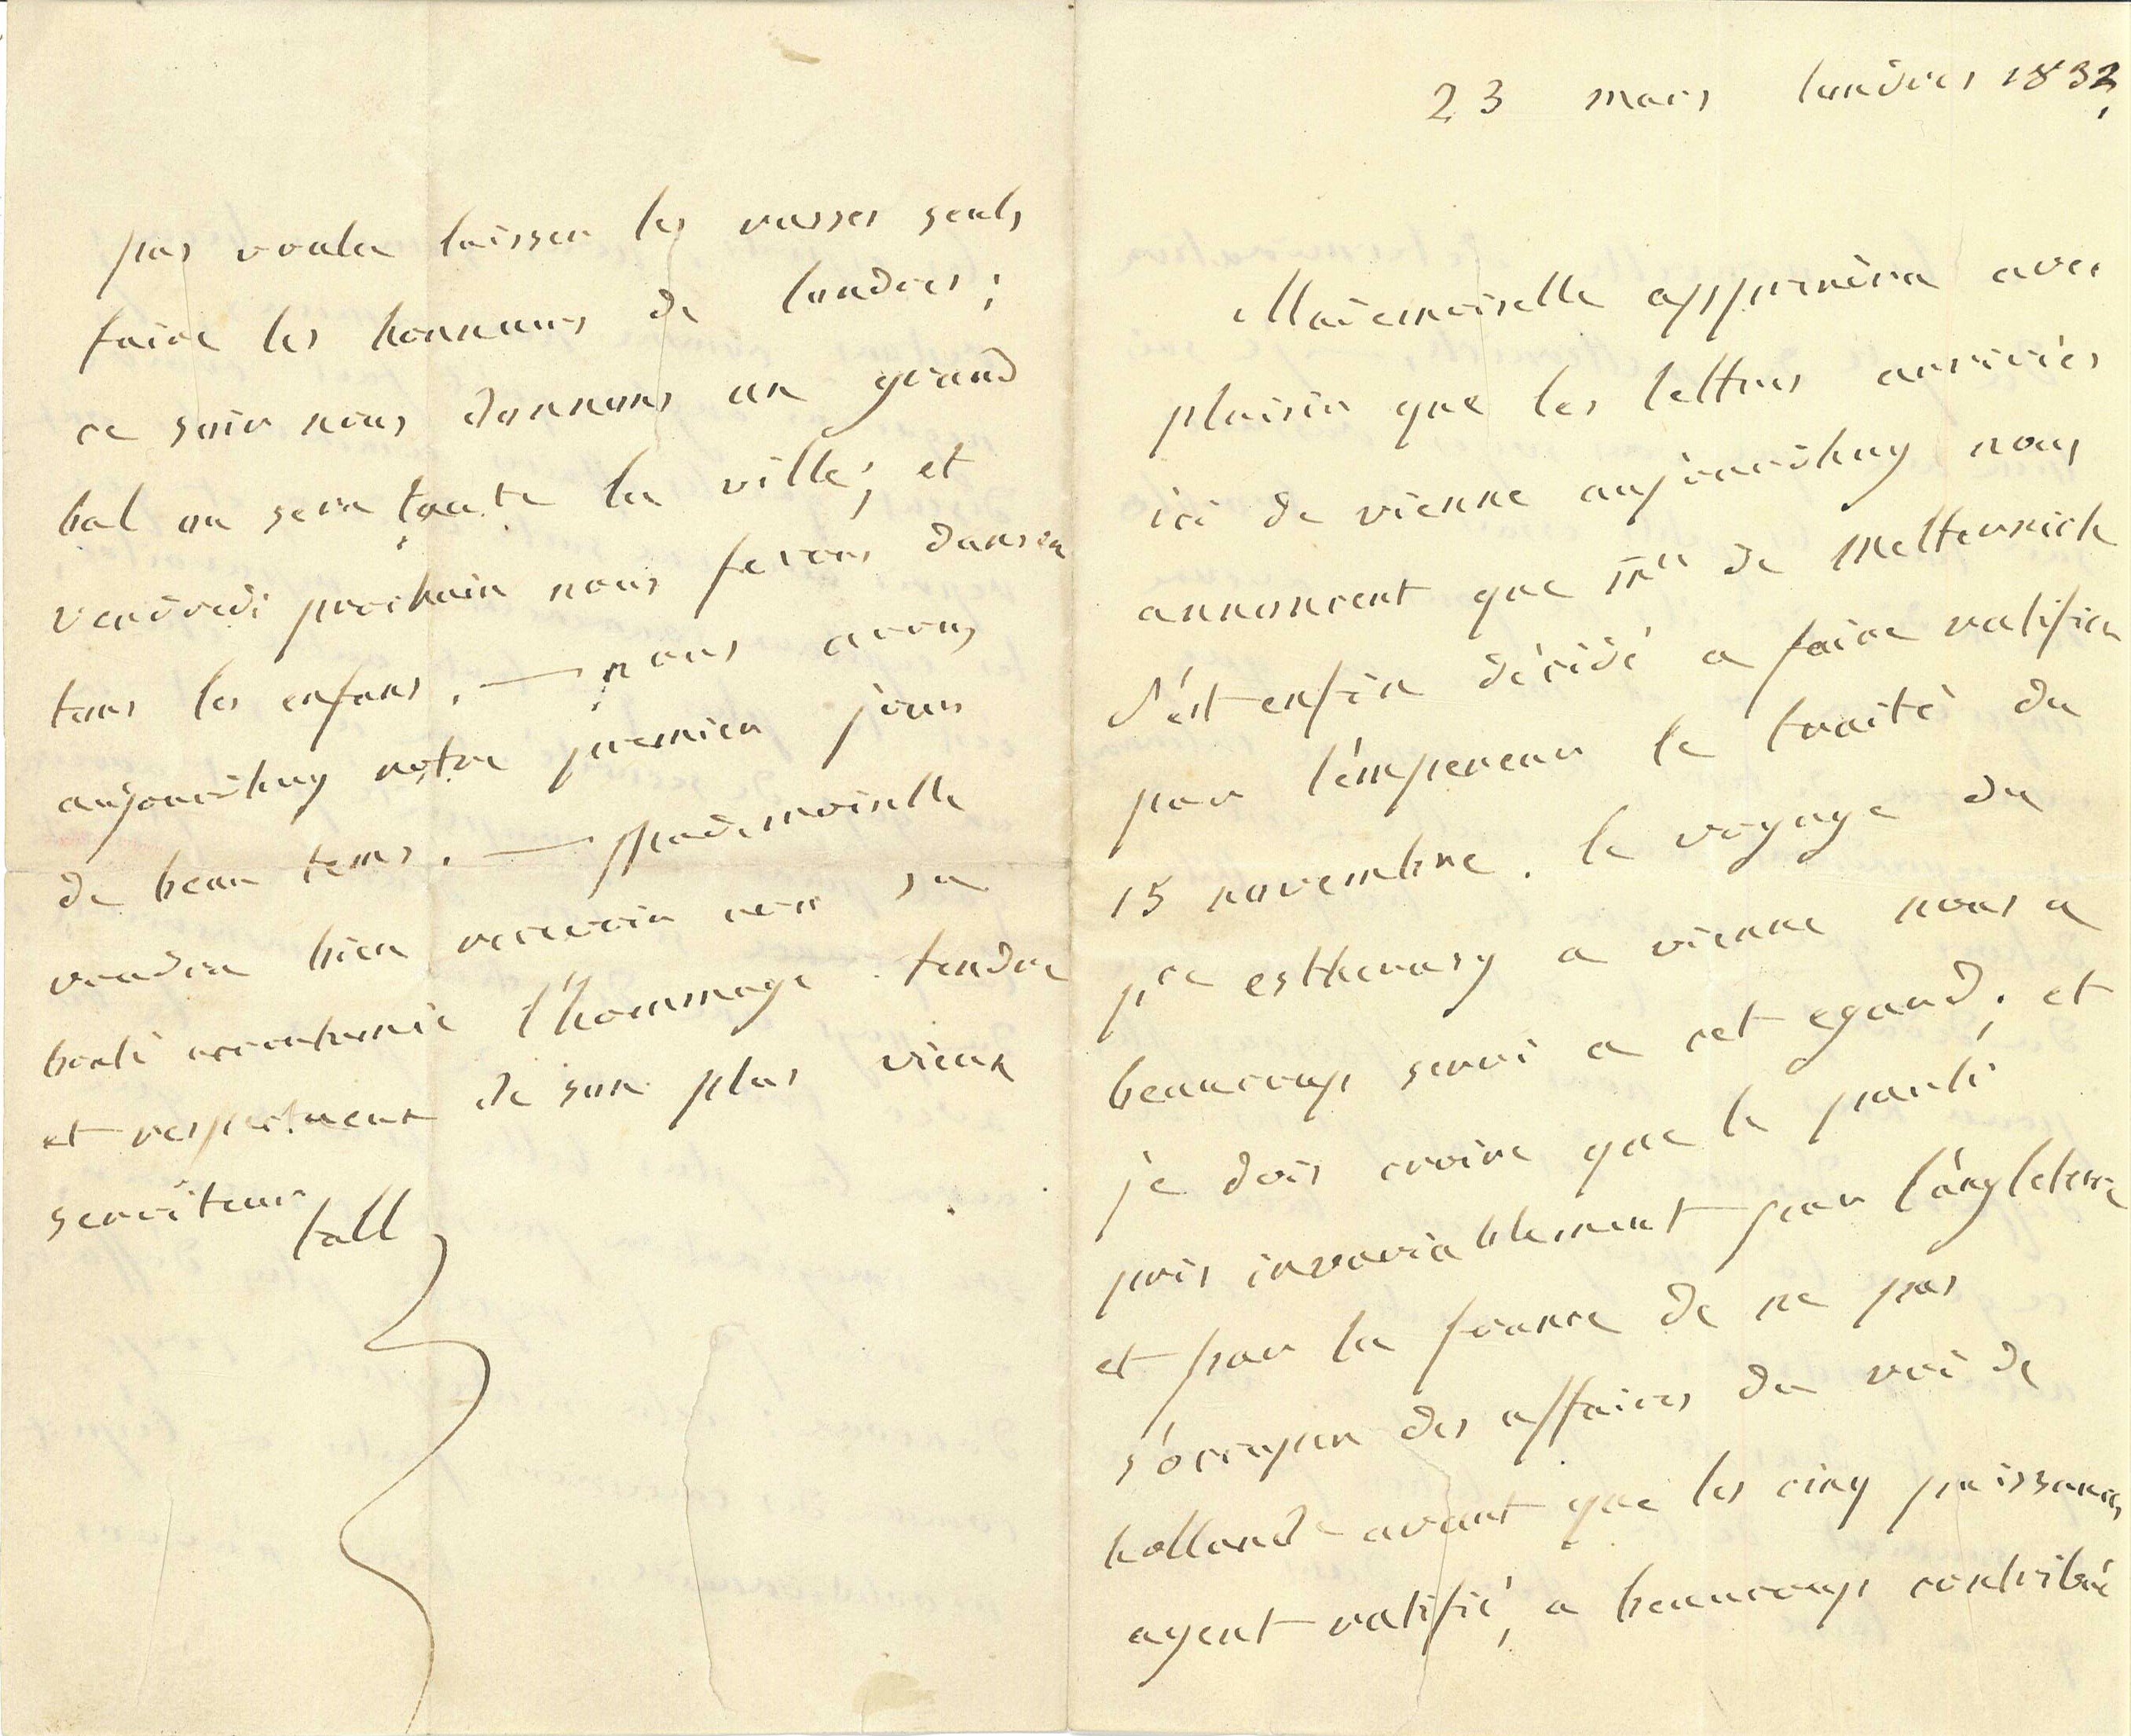 23 mars londres 1832,
Mademoiselle apprendra avec
plaisir que les lettres arrivées
ici de vienne aujourdhuy nous
annoncent que Mr de Metternich
s'est enfin décidé a faire ratifier
par l'empereur le traité du
15 novembre. le voyage du
pce estherasy a vienne nous a
beaucoup servi a cet egard; et
je dois croire que le parti
pris invariablement par l'angleterre
et par la france de ne pas
s'occuper des affaires du roi de
hollande avant que les cinq puissances
ayent ratifié, a beaucoup contribué
pas voulu laisser les russes seuls
faire les honneurs de londres;
ce soir nous donnons un grand
bal ou sera toute la ville; et
vendredi prochain nous ferons danser
tous les enfans. — nous avons
aujourdhuy notre premier jour
de beau tems. — Mademoiselle
voudra bien recevoir avec sa
bonté accoutumée l'hommage tendre
et respectueux de son plus vieux
serviteur
tall